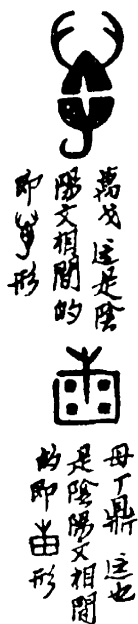 萬戈 這是陰
陽文相間的
即形
母丁鼎 這也
是陰陽文相間
的即形